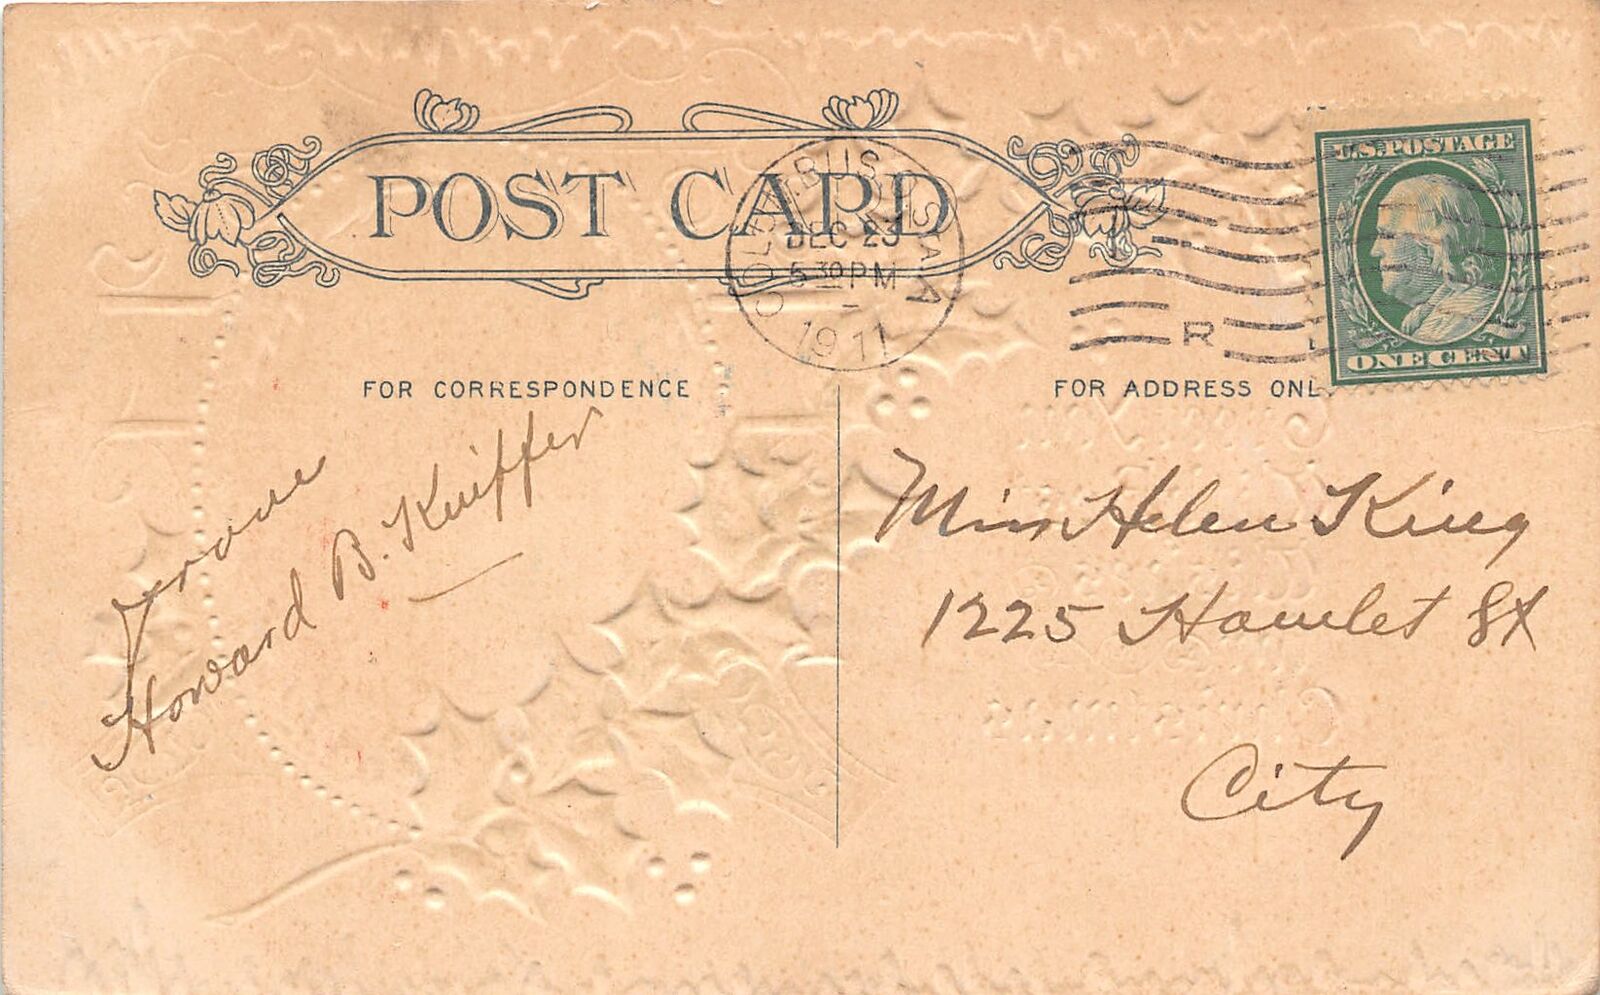 POST CARD
COLUMBUS, O. STA. A
DEC 23
5 30 PM
1911
R
U.S. POSTAGE
ONE CENT
FOR CORRESPONDENCE
FOR ADDRESS ONL
From
Howard B. Kuiffer
Miss Helen King
1225 Hamlet St
City